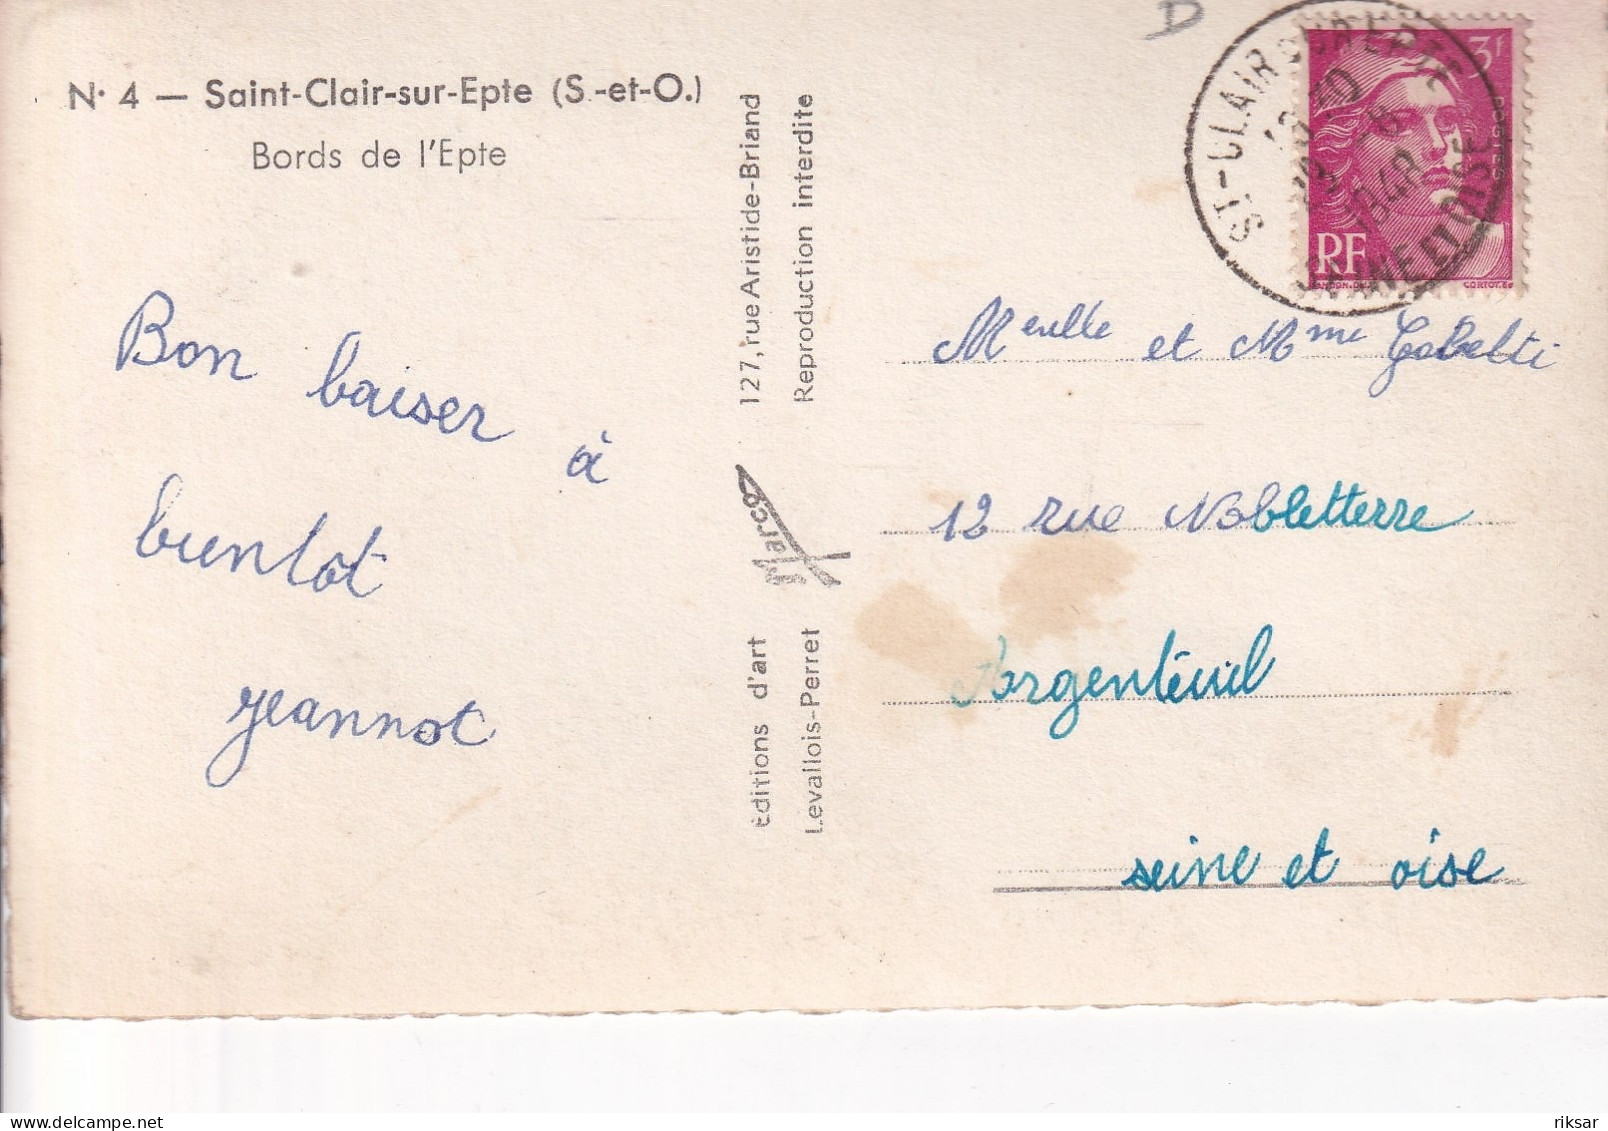 N° 4 — Saint-Clair-sur-Epte (S.-et-O.)
Bords de l'Epte
Bon baiser à
bientôt
jeannot
127, rue Aristide-Briand
Reproduction interdite
Marco
Éditions d'art
Levallois-Perret
D
ST-CLAIR SUR EPTE
SEINE ET OISE
3F
POSTES
RF
GANDON.DEL
CORTOT.SC
et Mme
12 rue Nobletterre
Argenteuil
seine et oise
riksar